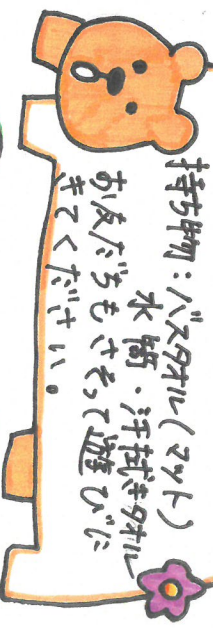 持ち物：バスタオル(マット)
水筒・汗拭きタオル
お友だちもさそって遊びに
きてください。